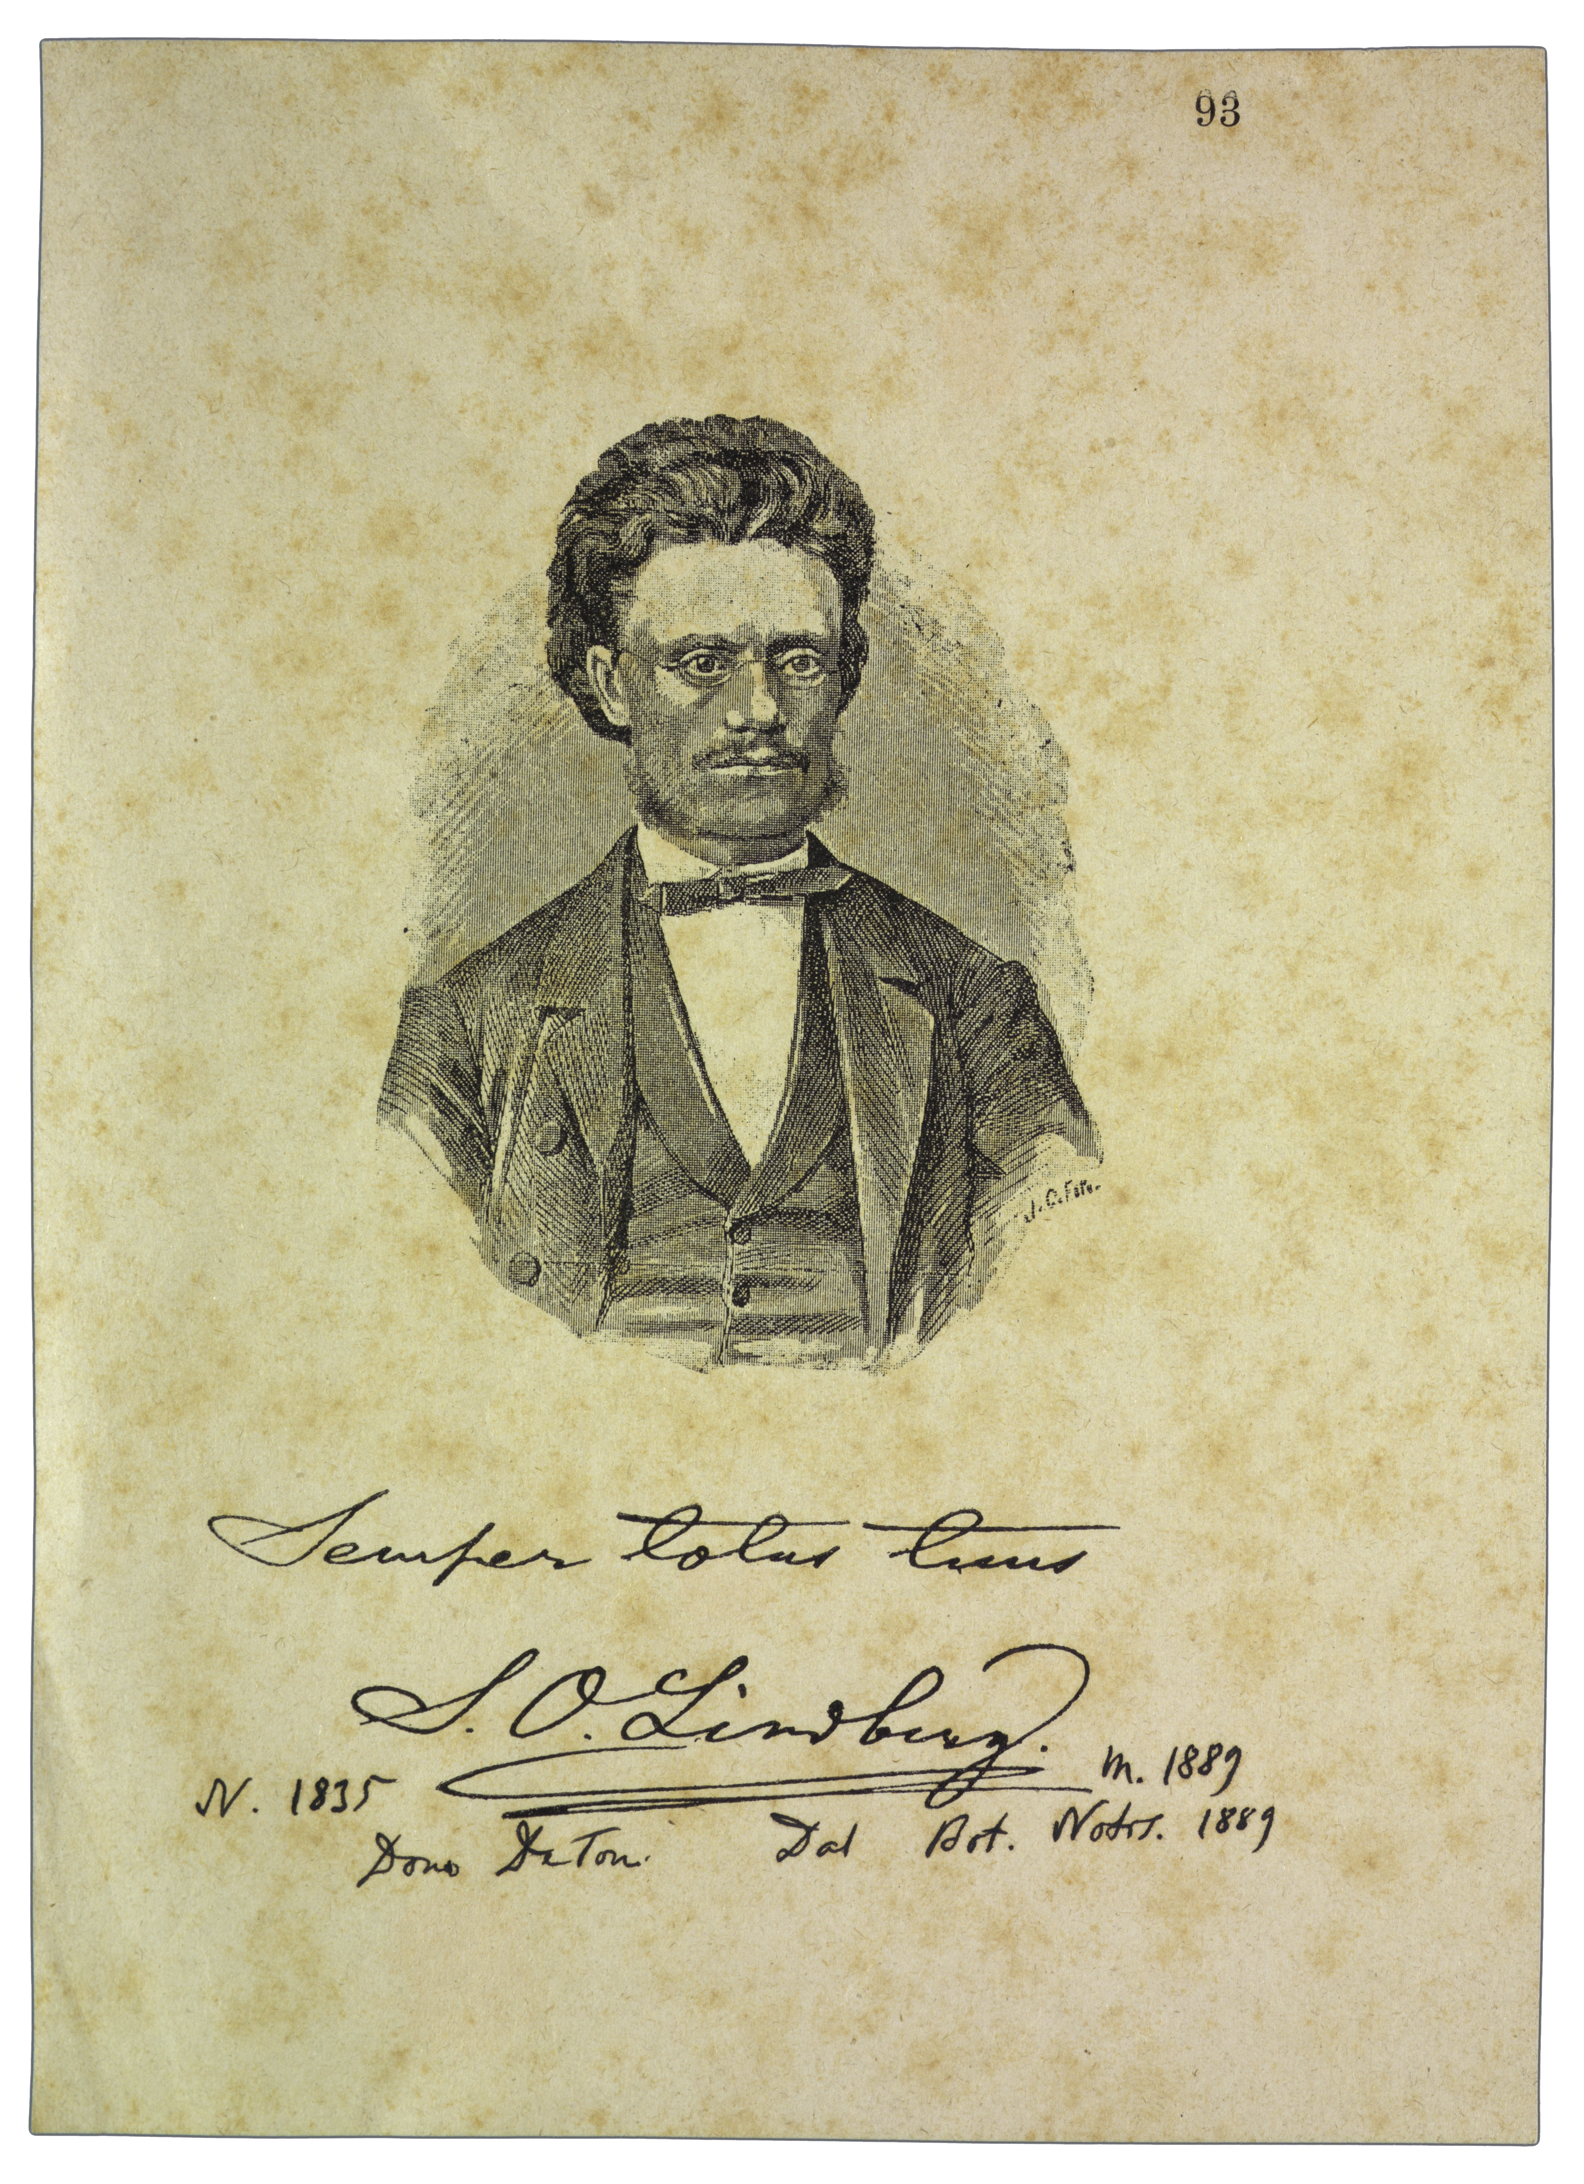 93
Semper totus tuus
S. O. Lindberg.
N. 1835 M. 1889
Dono De Toni. Dal Bot. Notis. 1889